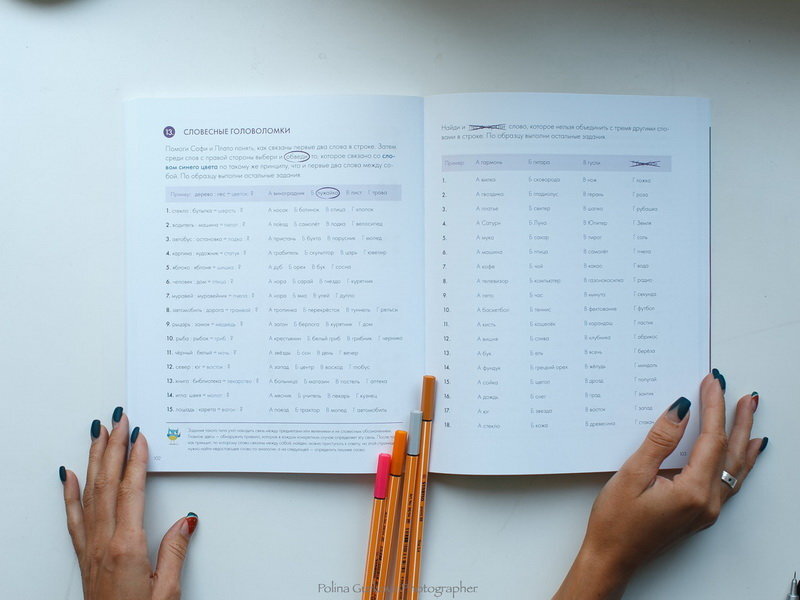 13. СЛОВЕСНЫЕ ГОЛОВОЛОМКИ
Помоги Софи и Плато понять, как связаны первые два слова в строке. Затем
среди слов с правой стороны выбери и обведи то, которое связано со сло-
вом синего цвета по такому же принципу, что и первые два слова между со-
бой. По образцу выполни остальные задания.
Пример: дерево : лес = цветок : ? А виноградник Б лужайка В лист Г трава
1. стекло : бутылка = шерсть : ? А носок Б ботинок В спица Г хлопок
2. водитель : машина = пилот : ? А поезд Б самолёт В лодка Г велосипед
3. автобус : остановка = лодка : ? А пристань Б бухта В парусник Г молед
4. картина : художник = статуя : ? А грабитель Б скульптор В царь Г ювелир
5. яблоко : яблоня = шишка : ? А дуб Б орех В бук Г сосна
6. человек : дом = птица : ? А нора Б сарай В гнездо Г курятник
7. муравей : муравейник = пчела : ? А нора Б яма В улей Г дупло
8. автомобиль : дорога = трамвай : ? А тропинка Б перекрёсток В туннель Г рельсы
9. рыцарь : замок = медведь : ? А загон Б берлога В курятник Г дом
10. рыба : рыбак = гриб : ? А крестьянин Б белый гриб В грибник Г черника
11. чёрный : белый = ночь : ? А звёзды Б сон В день Г вечер
12. север : юг = восток : ? А запад Б центр В восход Г глобус
13. книга : библиотека = лекарство : ? А больница Б магазин В постель Г аптека
14. игла : швея = молот : ? А месяц Б учитель В пекарь Г кузнец
15. лошадь : карета = вагон : ? А поезд Б трактор В мопед Г автомобиль
102
Найди и слово, которое нельзя объединить с тремя другими сло-
вами в строке. По образцу выполни остальные задания.
Пример: А гармонь Б гитара В гусли
1. А вилка Б сковорода В нож Г ложка
2. А гвоздика Б гладиолус В герань Г роза
3. А платье Б свитер В шапка Г рубашка
4. А Сатурн Б Луна В Юпитер Г Земля
5. А мука Б сахар В пирог Г соль
6. А машина Б птица В самолёт Г пчела
7. А кофе Б чай В какао Г вода
8. А телевизор Б компьютер В газонокосилка Г радио
9. А лето Б час В минута Г секунда
10. А баскетбол Б теннис В фехтование Г футбол
11. А кисть Б кошелёк В карандаш Г ластик
12. А вишня Б слива В клубника Г абрикос
13. А бук Б ель В ясень Г берёза
14. А фундук Б грецкий орех В жёлудь Г миндаль
15. А сойка Б щегол В дрозд Г попугай
16. А дождь Б снег В град Г зонтик
17. А юг Б звезда В восток Г запад
18. А стекло Б кожа В древесина Г стакан
103
Polina Photographer